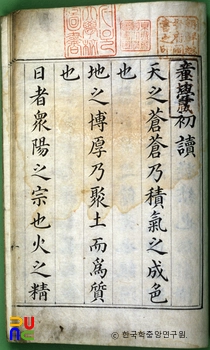 童學初讀
天之蒼蒼乃積氣之成色
也
地之博厚乃聚土而爲質
也
日者衆陽之宗也火之精
©한국학중앙연구원